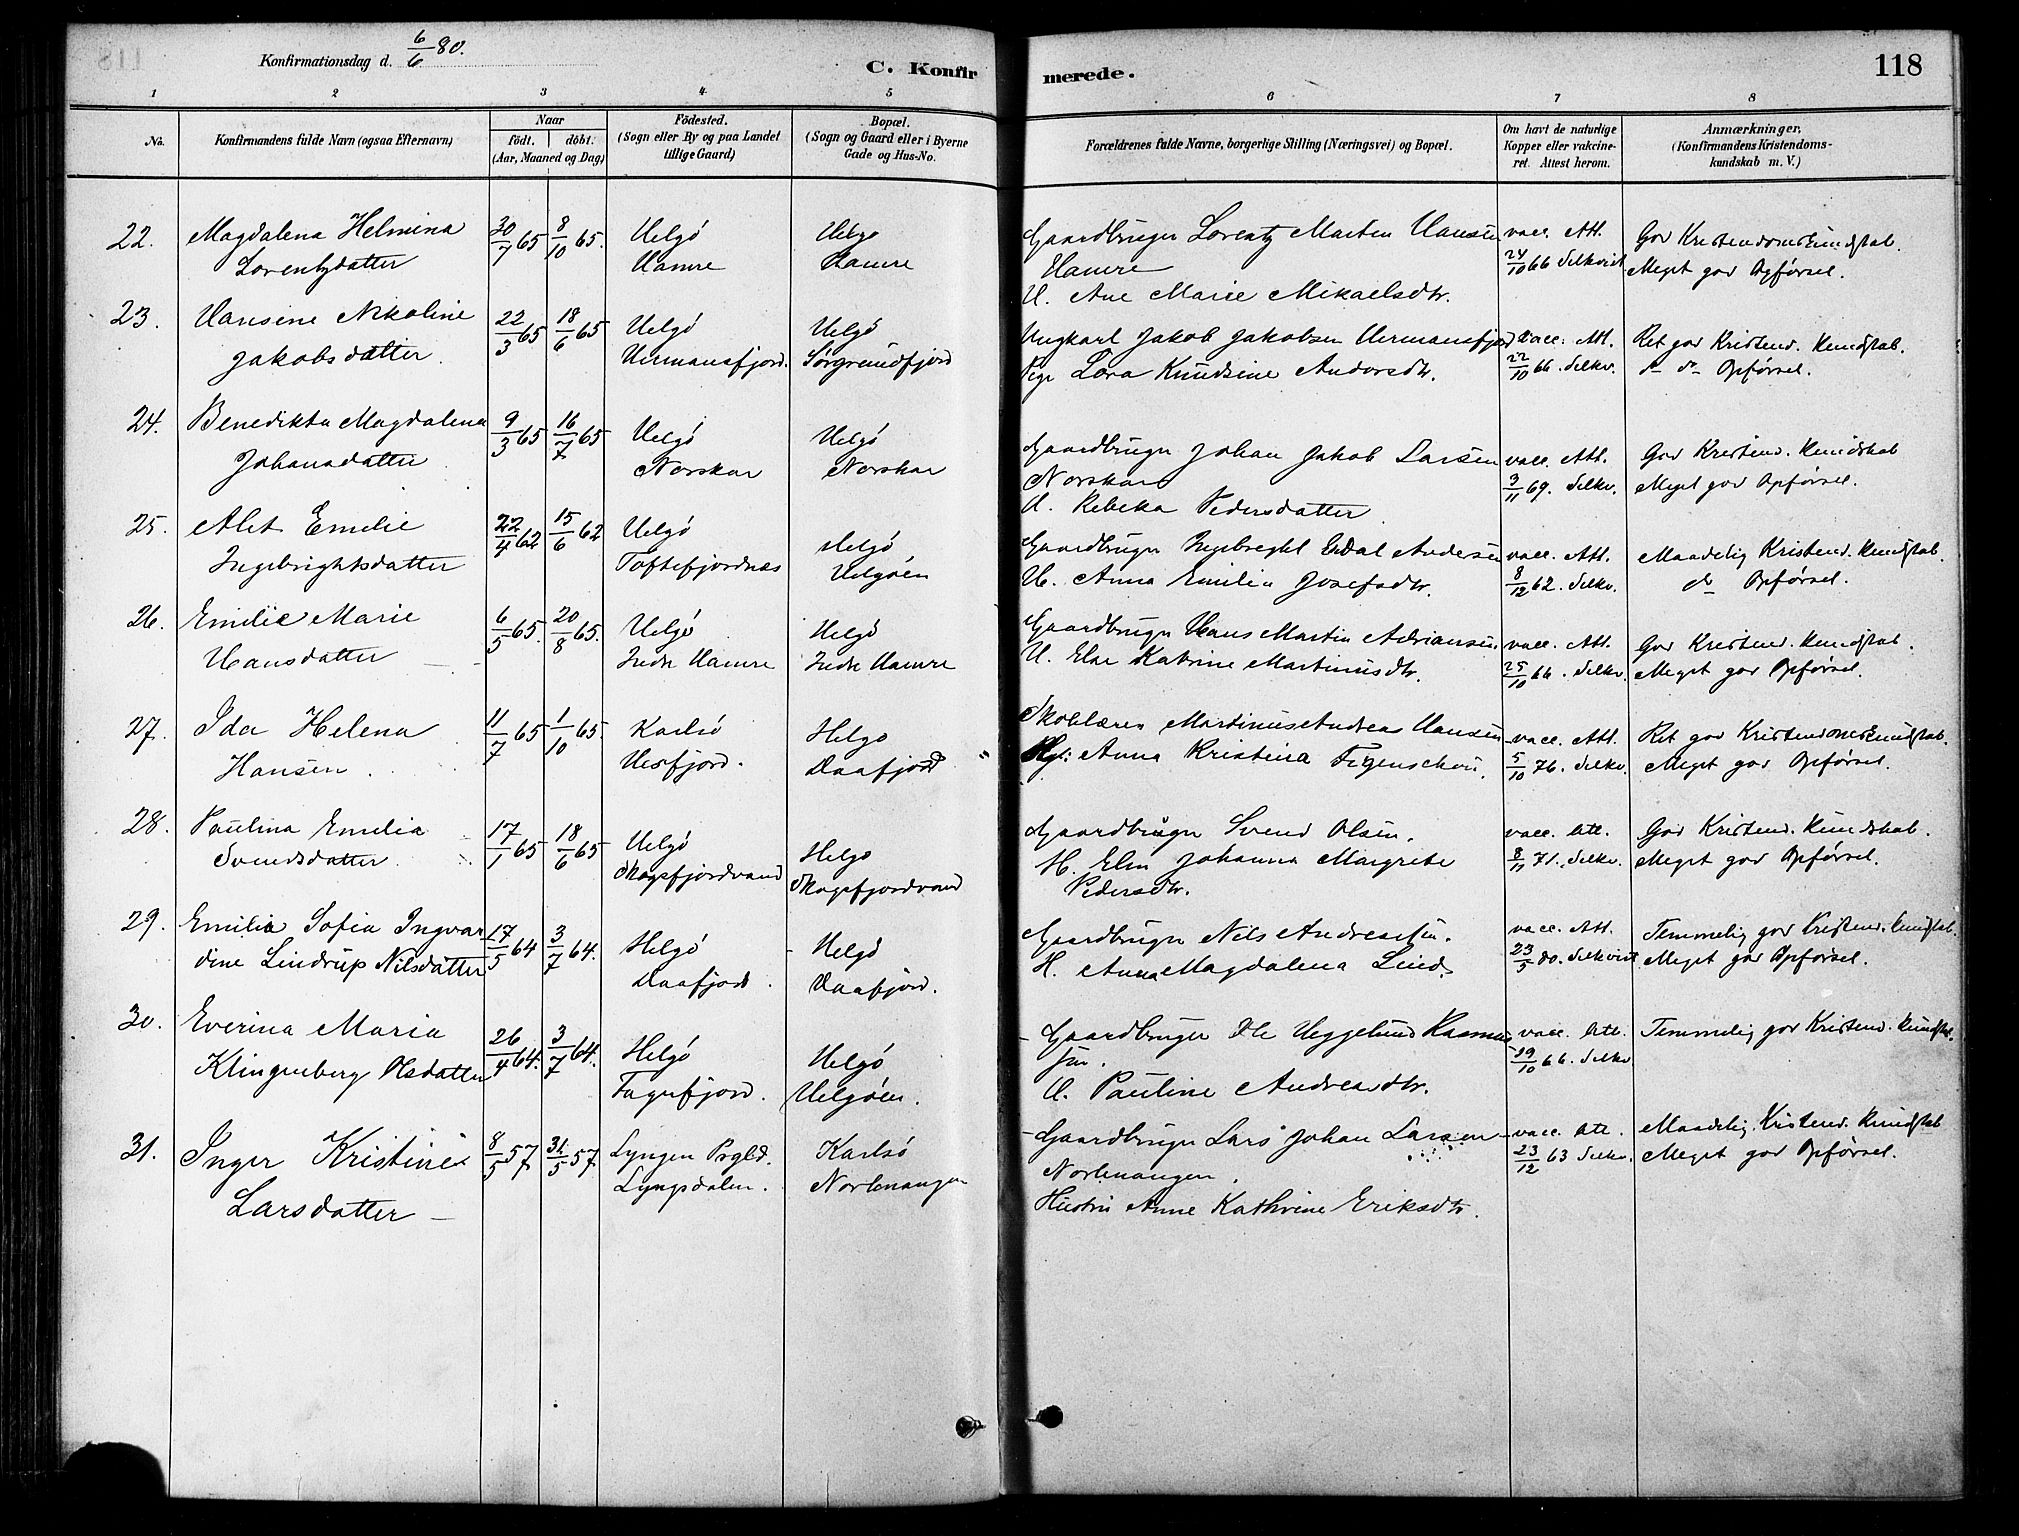 Konfirmationsdag d. 6/6 80.
C. Konfirmerede.
118
1 2 3 4 5 6 7 8
No.
Konfirmandens fulde Navn (ogsaa Efternavn)
Naar
födt. döbt.
(Aar, Maaned og Dag)
Födested.
(Sogn eller By og paa Landet
tillige Gaard)
Bopæl.
(Sogn og Gaard eller i Byerne
Gade og Hus-No.
Forældrenes fulde Navne, borgerlige Stilling (Næringsvei) og Bopæl.
Om havt de naturlige
Kopper eller vakcine-
ret. Attest herom.
Anmærkninger,
(Konfirmandens Kristendoms-
kundskab m. V.)
22. Magdalena Helmina 30/7 65 8/10 65. Helgö Helgö Gaardbruger Lorentz Martin Hansen vacc. Att. God Kristendomskundskab.
Lorentzdatter Hamre Hamre Hamre 24/10 66 Selkvist Meget god Opførsel.
H. Ane Marie Mikaelsdtr.
23. Hansine Nikoline 22/3 65 18/6 65 Helgö Helgö Ungkarl Jakob Jakobsen Hermansfjord vacc. Att. Ret god Kristend. kundskab.
Jakobsdatter. Hermansfjord. Sörgrundfjord Pige Lova Knudsine Andersdtr. 22/10 66. Selkv. do do Opførsel.
24. Benedikta Magdalena 9/3 65 16/7 65 Helgö Helgö Gaardbruger Johan Jakob Larsen vacc. Att. God Kristend. kundskab
Johansdatter Norskar Norskar Norskar 9/11 69. Selkv. Meget god Opførsel.
H. Rebeka Pedersdatter
25. Alet Emilie 22/4 62 15/6 62 Helgö Helgö Gaardbruger Ingebregt Edal Andersen vacc. Att. Maadelig Kristend. kundskab.
Ingebrightsdatter Toftefjordnæs Helgöen H. Anna Emilia Josefsdtr. 8/12 62. Selkv. do Opførsel.
26. Emilie Marie 6/5 65. 20/8 65. Helgö Helgö Gaardbruger Hans Martin Adriansen. vacc. Att. God Kristend. kundskab.
Hansdatter Indre Hamre Indre Hamre H. Elen Katrine Martinusdtr. 25/10 66. Selkv. Meget god Opførsel.
27. Ida Helena 11/7 65 1/10 65. Karlsö Helgö Skolelærer Martinus Andreas Hansen vacc. Att. Ret god Kristendomskundskab.
Hansen. Vesfjord. Daafjord Anna Kristina Figenschou. 5/10 76. Selkv. Meget god Opførsel.
28. Paulina Emilia 17/1 65 18/6 65 Helgö Helgö Gaardbruger Svend Olsen. vacc. Att. God Kristend. kundskab.
Svendsdatter. Skogsfjordvand Skogsfjordvand H. Elen Johanna Margrete 8/11 71. Selkv. Meget god Opførsel.
Pedersdtr.
29. Emilia Sofia Ingvar 17/5 64 3/7 64. Helgö Helgö Gaardbruger Nils Andreassen. vacc. Att. Temmelig god Kristend. kundskab.
dine Lindrup Nilsdatter Daafjord. Daafjord. H. Anna Magdalena Lind. 23/5 80. Selkvist Meget god Opførsel.
30. Everina Maria 26/4 64. 3/7 64. Helgö Helgö Gaardbruger Ole Heggelund Rasmus vacc. Att. Temmelig god Kristend. kundskab.
Klingenberg Olsdatter Fagerfjord. Helgöen. sen. 19/10 66. Selkv
H. Pauline Andreasdtr.
31. Inger Kristine 8/5 57 31/5 57. Lyngen Prgld. Karlsö Gaardbruger Lars Johan Larsen vacc. Att. Maadelig Kristend. kundskab
Larsdatter Lyngsdalen. Norlenangen Norlenangen. 23/12 63 Selkv. Meget god Opførsel.
Hustru Anne Kathrine Eriksdtr.